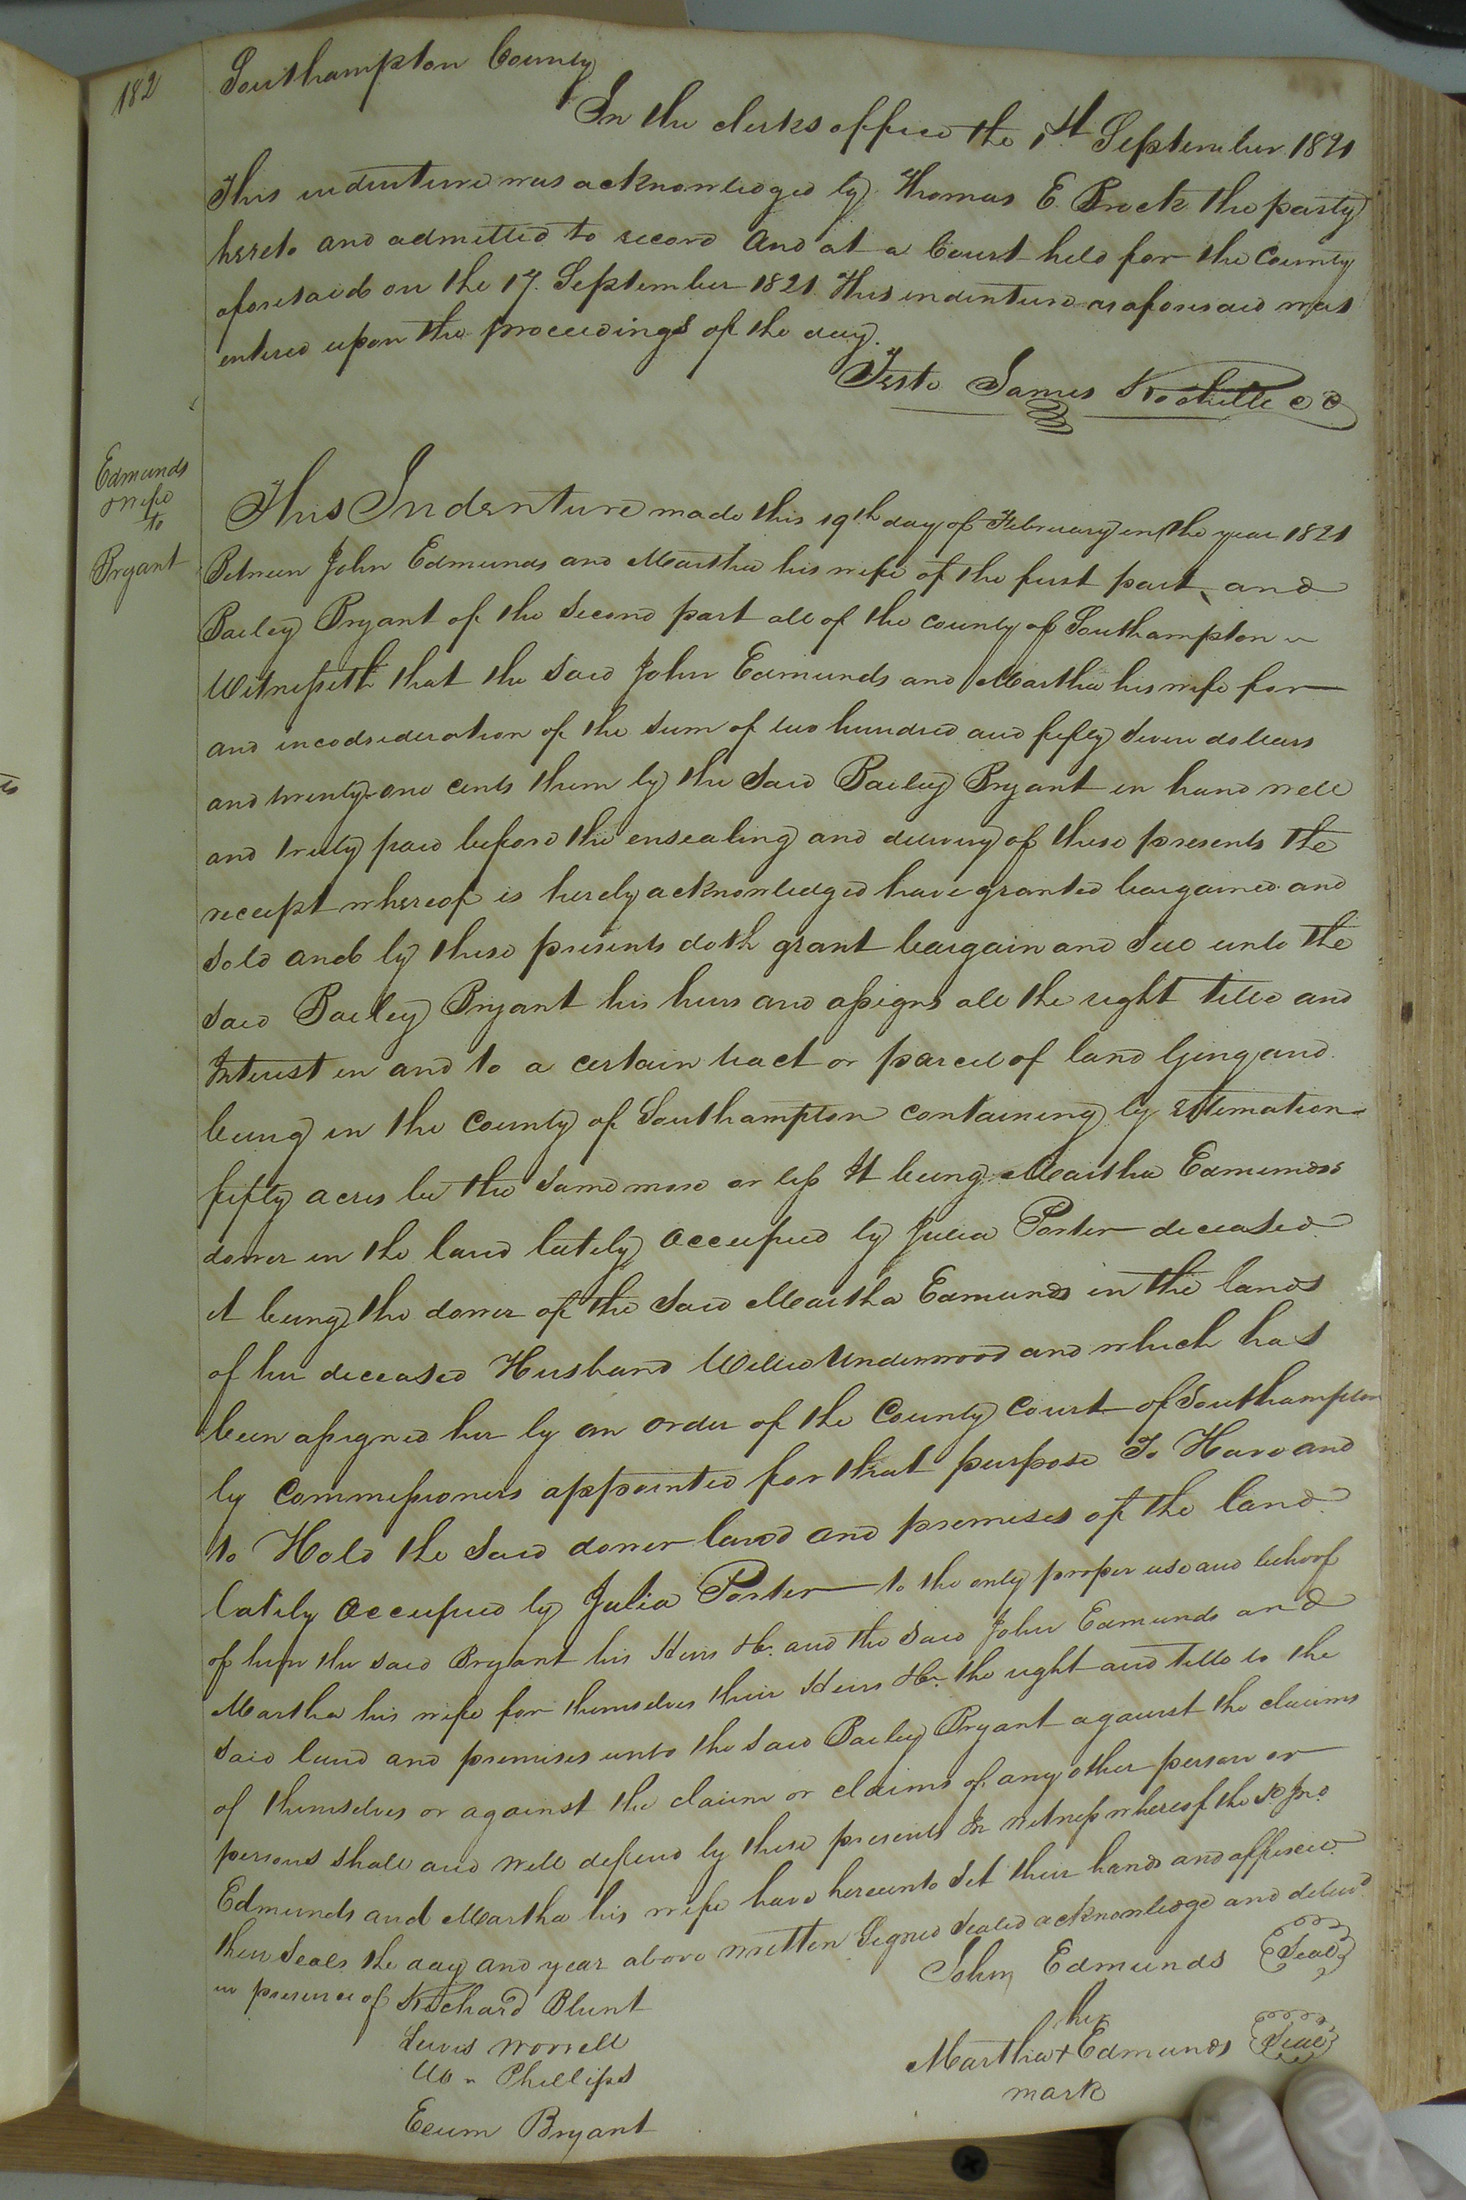 182
Southampton County
In the clerks office the 1st September 1821
This indenture was acknowledged by Thomas E. Brock the party
hereto and admitted to record And at a Court held for the County
aforesaid on the 17 September 1821 This indenture as aforesaid was
entered upon the proceedings of the day.
Teste James Rochelle CC
Edmunds
& wife
to
Bryant
This Indenture made this 19th day of February in the year 1821
Between John Edmunds and Martha his wife of the first part, and
Bailey Bryant of the Second part all of the county of Southampton
Witnesseth that the Said John Edmunds and Martha his wife for
and incodsideration of the Sum of two hundred and fifty Seven dollars
and twenty-one cents them by the Said Bailey Bryant in hand well
and truly paid before the ensealing and delivery of these presents the
receipt whereof is hereby acknowledged have granted bargained and
Sold and by these presents doth grant bargain and Sell unto the
Said Bailey Bryant his heirs and assigns all the right title and
Interest in and to a certain tract or parcel of land lying and
being in the County of Southampton containing by estimation
fifty acres be the Same more or less It being Martha Edmunds
dower in the land lately occupied by Julia Porter deceased
it being the dower of the Said Martha Edmunds in the lands
of her deceased Husband Willie Underwood and which has
been assigned her by an order of the County Court of Southampton
by Commissioners appointed for that purpose To Have and
to Hold the Said dower land and premises of the land
lately occupied by Julia Porter to the only proper use and behoof
of him the said Bryant his Heirs &c. and the Said John Edmunds and
Martha his wife for themselves their Heirs &c. the right and title to the
Said land and premises unto the Said Bailey Bryant against the claims
of themselves or against the claim or claims of any other person or
persons shall and will defend by these presents In witness whereof the sd. Jno.
Edmunds and Martha his wife have hereunto Set their hands and affixed
their Seals the day and year above written Signed Sealed acknowledge and delivd.
in presence of Richard Blunt
John Edmunds Seal
Lewis Worrell
her
Wm Phillips
Martha + Edmunds Seal
mark
Bryant